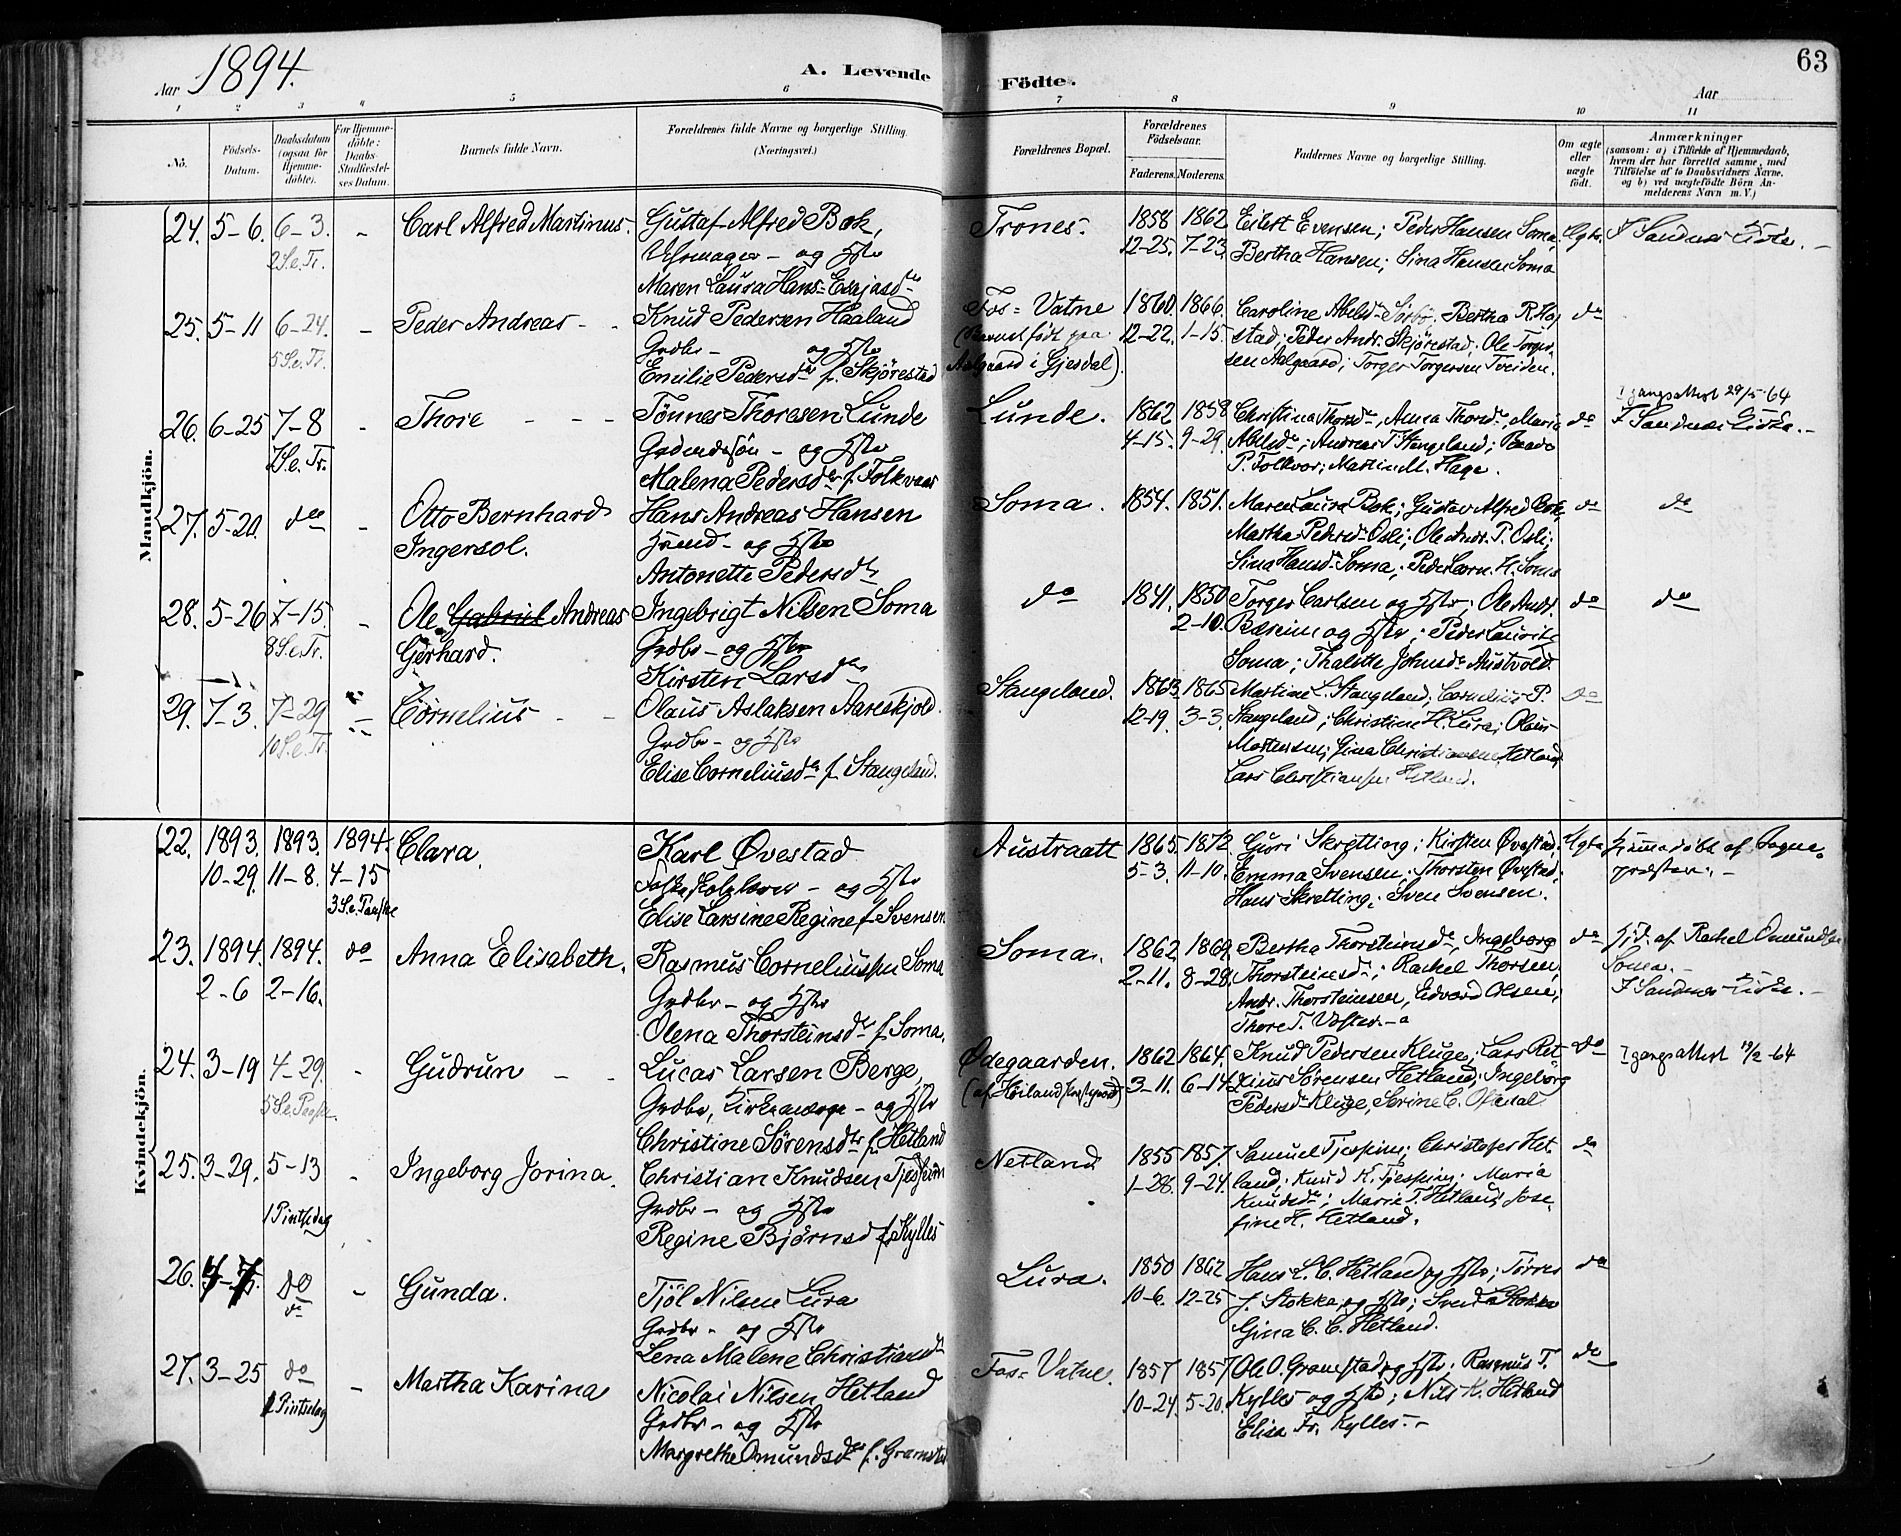 Aar 1894. A. Levende Födte. Aar 63
1 2 3 4 5 6 7 8 9 10 11
No.
Födsels-Datum.
Daabsdatum (ogsaa for Hjemme-döbte).
For Hjemme-döbte: Daabs-Stadfæstel-ses Datum.
Barnets fulde Navn.
Forældrenes fulde Navne og borgerlige Stilling.
(Næringsvei.)
Forældrenes Bopæl.
Forældrenes Födselsaar.
Faderens. Moderens.
Faddernes Navne og borgerlige Stilling.
Om ægte eller uægte födt.
Anmærkninger
(saasom: a) i Tilfælde af Hjemmedaab,
hvem der har forrettet samme, med
Tilföielse af to Daabsvidners Navne,
og b) ved uægtefödte Börn An-
melderens Navn m. V.)
Mandkjön.
24. 5-6. 6-3. - Carl Alfred Martinus. Gustaf Alfred Bok, Trones. 1858 1862 Eilert Evensen; Peder Hansen Soma; Ægte. I Sandnes Kirke.
2 S.e.Tr. Uhrmager - og Hstr 12-25. 7-23. Bertha Hansen; Sina Hansen Soma
Maren Laura Hans-Esaiasdtr
25. 5-11 6-24. - Peder Andreas - - Knud Pedersen Haaland Fos-Vatne 1860. 1866. Caroline Abelsd Sørbø. Bertha R. Hog
5 S.e.Tr. Grdbr - og Hstr (Barnet født paa 12-22. 1-15. stad; Peder Andr. Skjørestad; Ole Torger- do
Emilie Pedersdtr f. Skjørestad Aalgaard i Gjesdal). sen Aalgaard; Torger Torgersen Tveiden.
Igangsattest 29/5-64
26. 6-25 7-8 - Thore - - - Tönnes Thoresen Lunde Lunde. 1862 1858 Christina Thorsdr, Anna Thorsdr, Maria do I Sandnes Kirke.
7 S.e. Tr. Grdmdssøn - og Hstr 4-15. 9-29. Abelsdr; Andreas T. Stangeland; Baard
Malena Pedersdtr f. Folkvor P. Folkvor; Martin M. Hage.
27. 5-20. do - Otto Bernhard Hans Andreas Hansen Soma. 1854. 1851. Maren Laura Bok; Gustav Alfred Bok, do do
Ingersol. Hrmd - og Hstr Martha Pedersd Osli; Ole Andr. P. Osli;
Antonette Pedersdtr Sina Hansd Soma; Peder Corn. H. Soma
28. 5-26 7-15. - Ole Gabriel Andreas Ingebrigt Nilsen Soma do 1841. 1850 Torger Carlsen og Hstr; Ole Andr. do do
8 S.e.Tr. Gerhard. Grdbr - og Hstr 2-10. Bærheim og Hstr; Peder Lauritz
Kirsten Larsdtr Soma; Thalette Johnsdr Austvold.
29. 7-3. 7-29 - Cornelius - - Olaus Aslaksen Aareskjold. Stangeland. 1863. 1865 Martine L. Stangeland; Cornelius P. do
10 S.e.Tr. Grdbr - og Hstr 12-19. 3-3. Stangeland; Christine H. Lura; Olaus
Elise Corneliusdtr f. Stangeland. Mortensen; Gina Christiansen Hetland
Lars Christiansen Hetland.
Kvindekjön.
22. 1893. 1893. 1894. Clara. Karl Øvestad Austraatt 1865. 1872. Guri Skretting; Kirsten Øvestad; Ægte Hjemmedöbt af Sogne-
10-29. 11-8. 4-15 - og Hstr 5-3. 11-10. Emma Svensen; Thorsten Øvestad; præsten.
3 S.e. Paaske Elise Larsine Regine f. Svensen Hans Skretting; Sven Svensen.
23. 1894. 1894. do Anna Elisabeth. Rasmus Corneliussen Soma Soma. 1862 1869 Bertha Thorsteinsdr, Ingeborg do Hjd. af Rachel Omundsdr
2-6 2-16. Grdbr - og Hstr 2-11. 8-28. Thorsteinsdr; Rachel Thorsen, Soma.
Olena Thorsteinsdtr f. Soma. Andr. Thorsteinsen, Edvard Olsen, I Sandnes Kirke.
Thore T.
24. 3-19 4-29. - Gudrun - - Lucas Larsen Berge, Ødegaarden. 1862 1864. Knud Pedersen Kluge; Lars Ret- do Igangsattest 19/2-64
5 S.e. Paaske. Grdbr, Kirkeværge - og Hstr (af Høiland Præstegaard) 3-11. 6-14. Zius Sørensen Hetland; Ingeborg
Christine Sørensdtr f. Hetland Pedersdr Kluge, Serine C.
25. 3-29. 5-13 - Ingeborg Jorina. Christian Knudsen Tjessem Hetland 1855 1857. Samuel Tjessem; Christofer Het- do
1 Pintsedag Grdbr - og Hstr 1-28. 9-24. land; Knud K. Tjessem; Maria
Regine Bjørnsd f. Kylles Knudsdr; Marie T. Hetland, Jose-
fine H. Hetland.
26. 4-7. do - Gunda. Tjöl Nilsen Lura Lura. 1850 1862 Hans L. C. Hetland og Hstr; Tørres do
do Grdbr - og Hstr 10-6. 12-25 J. Stokka og Hstr; Svend Stokka
Lena Malene Christiansdtr Gina C. C. Hetland.
27. 3-25 do - Martha Karina Nicolai Nilsen Hetland Fos-Vatne. 1857 1857 Ole O. Gramstad og Hstr. Rasmus T. do
1 Pintsedag Grdbr - og Hstr 10-24. 5-20. Kylles og Hstr; Nils K. Hetland
Margrethe Omundsdtr f. Gramstad Elisa Fr. Kylles.